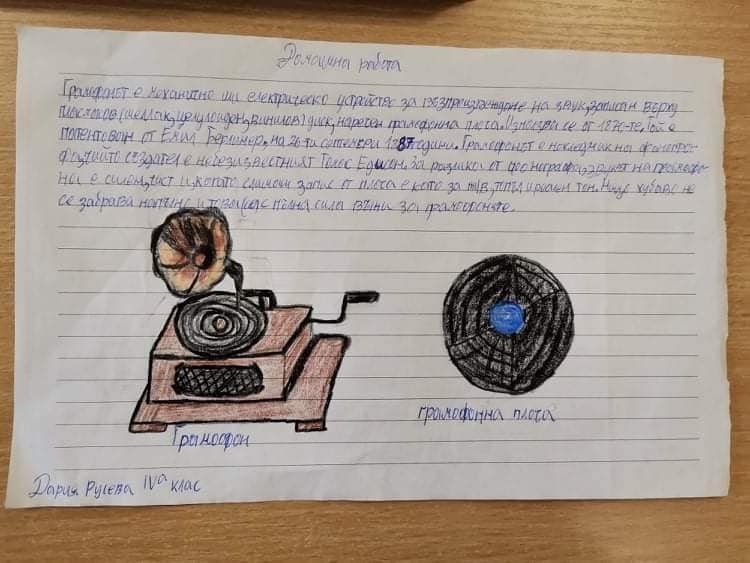 Домашна работа
Грамофонът е механично или електрическо устройство за възпроизвеждане на звук, записан върху
плосков (шеллак, целулоиден, винилов) диск, наречен грамофонна плоча. Използва се от 1870-те. Той е
патентован от Емил Берлинер, на 26-ти септември 1887 година. Грамофонът е наследник на фоногра-
фа, чийто създател е небезизвестният Томас Едисън. За разлика от фонографа, звукът на грамофо-
на е силен, чист и, когато слушаш запис от плоча е като за жив, топъл и реален тон. Нещо хубаво не
се забравя напълно и това с пълна сила важи за грамофоните.
Грамофон
грамофонна плоча
Дария Русева IVа клас